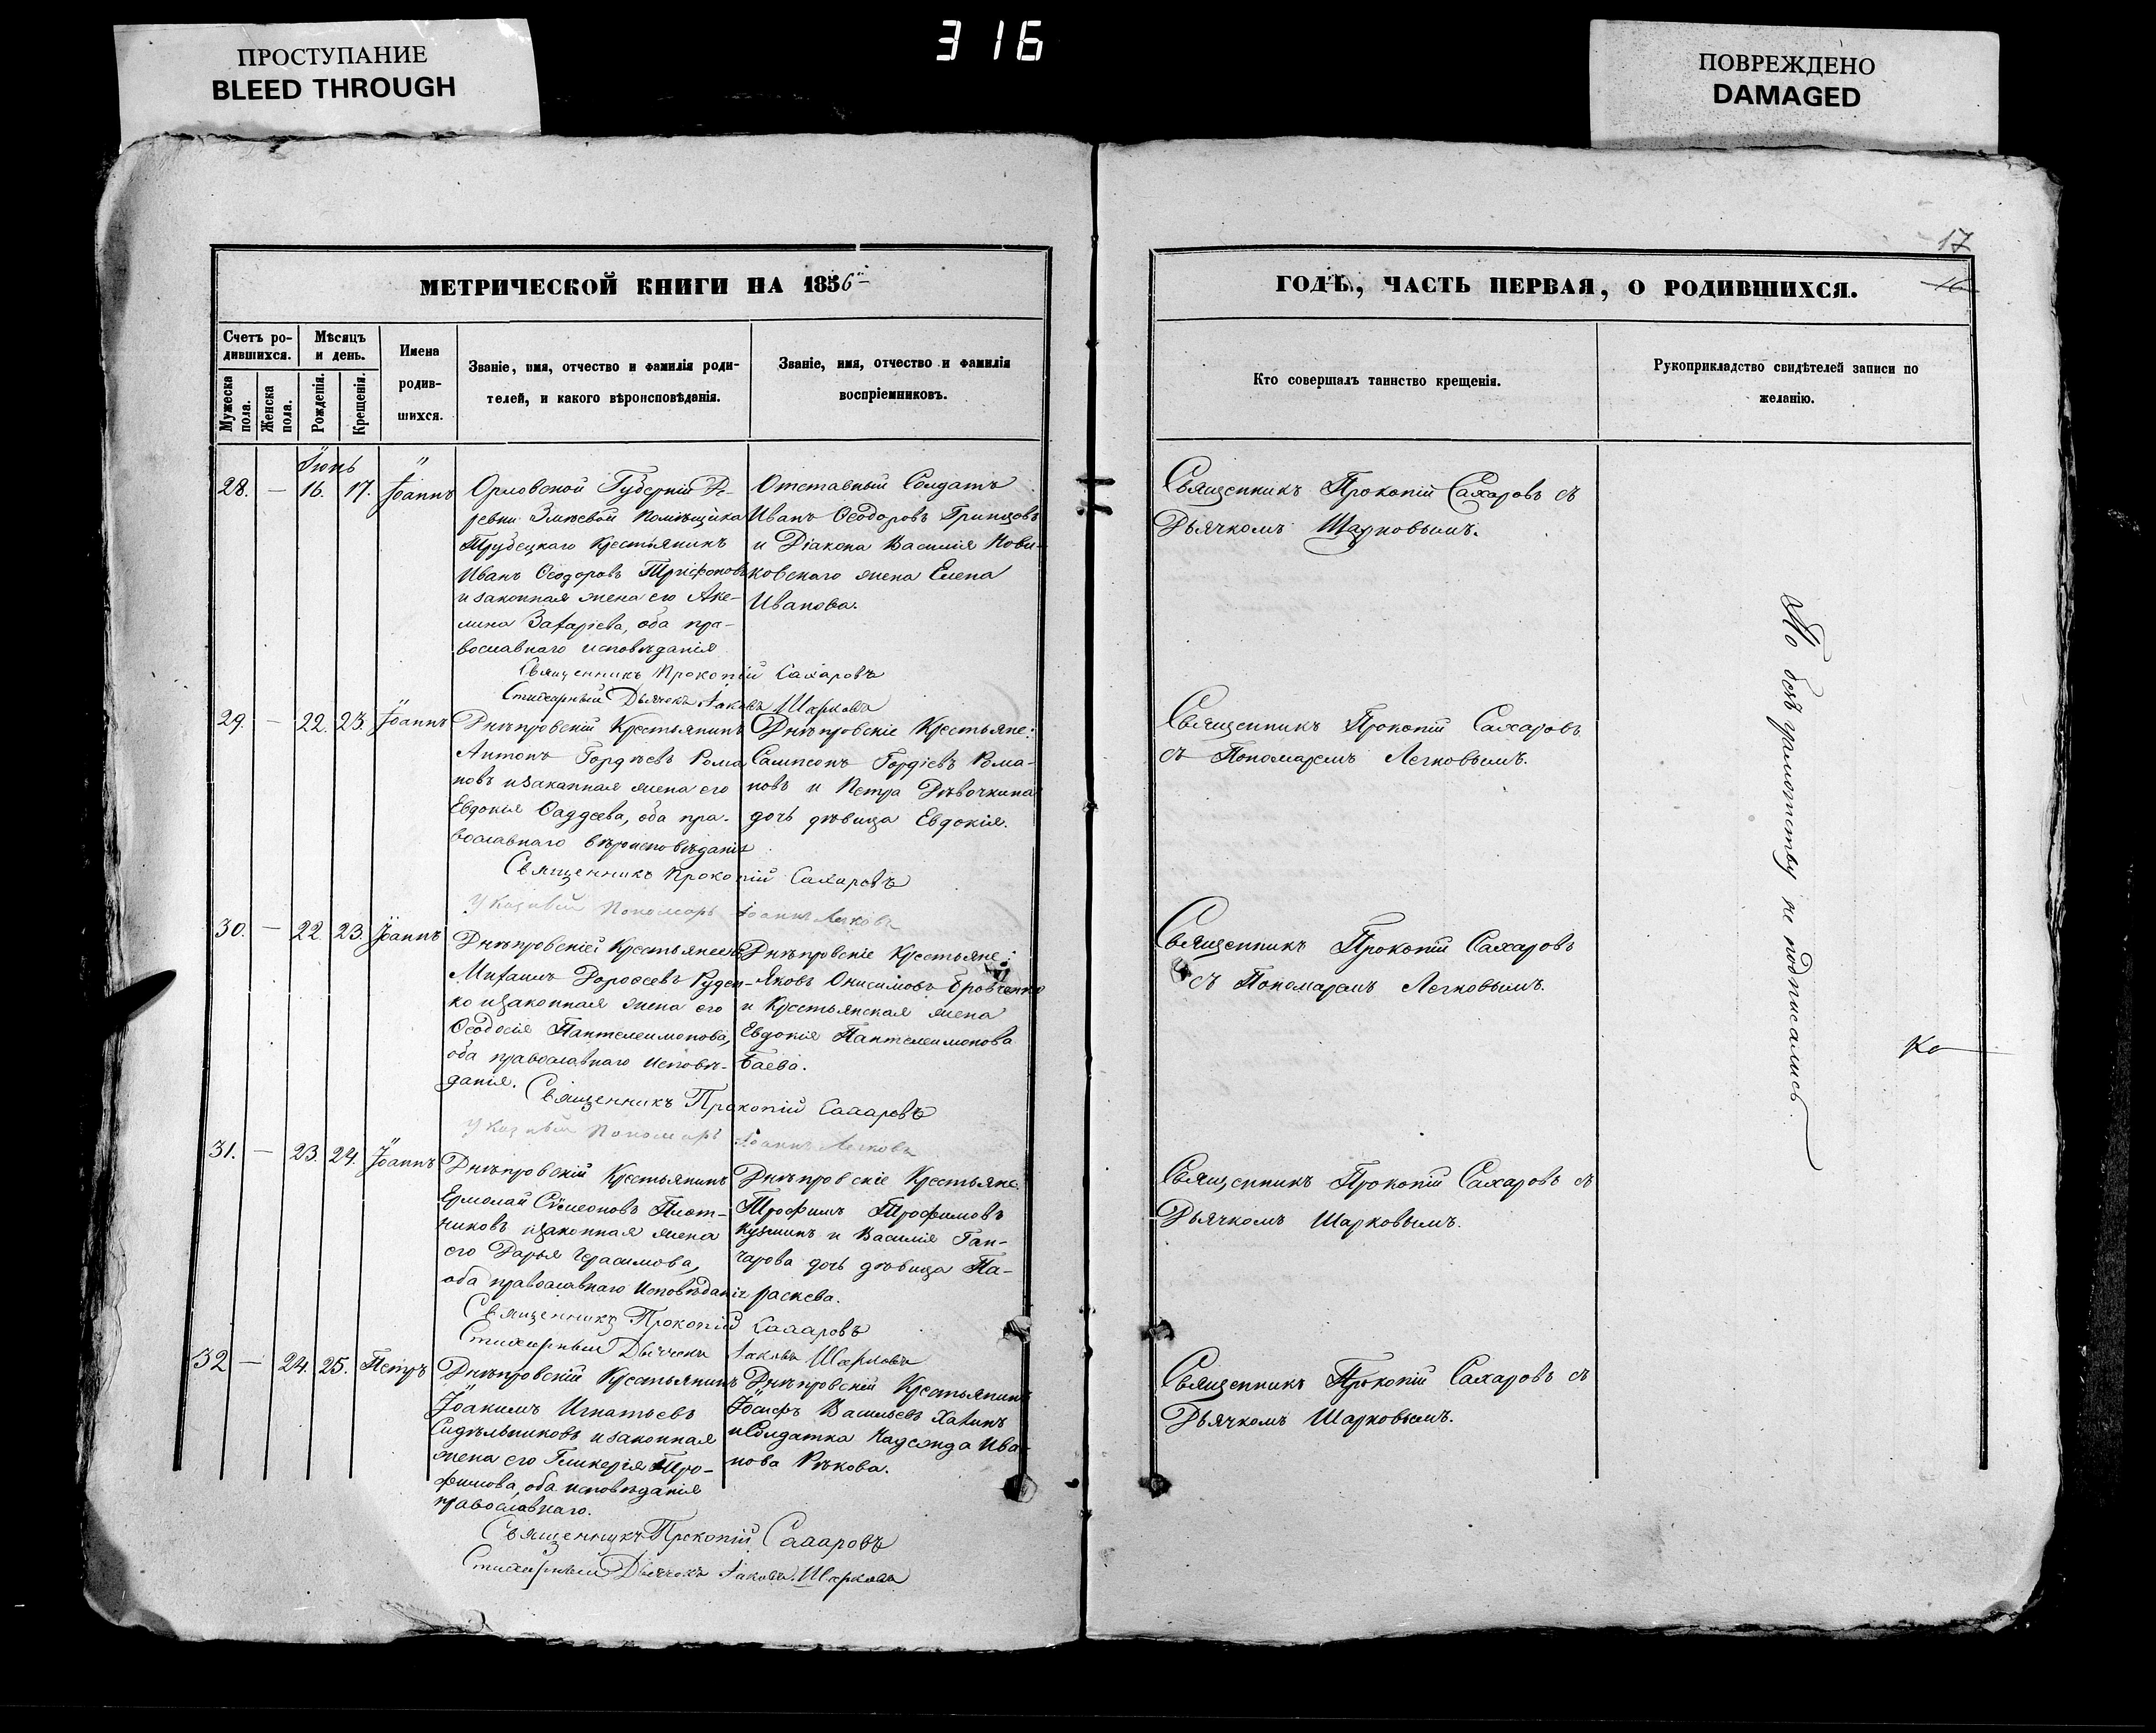 ПРОСТУПАНИЕ
BLEED THROUGH
316
ПОВРЕЖДЕНО
DAMAGED
МЕТРИЧЕСКОЙ КНИГИ НА 1856й
Счетъ ро-
дившихся.
Мужеска пола.
Женска пола.
Мѣсяцъ
и день.
Рожденія.
Крещенія.
Имена
родив-
шихся.
Званіе, имя, отчество и фамилія роди-
телей, и какого вѣроисповѣданія.
Званіе, имя, отчество и фамилія
воспріемниковъ.
Іюнь
28. — 16. 17. Іоаннъ
Орловской Губерніи Де-
ревни Змѣевой Помѣщика
Трубецкаго Крестьянинъ
Иванъ Ѳеодоровъ Трифоновъ
и законная жена его Аке-
лина Захаріева, оба пра-
вославнаго исповѣданія
Отставный Солдатъ
Иванъ Ѳеодоровъ Гринцовъ
и Діакона Василія Нови-
ковскаго жена Елена
Иванова.
Священникъ Прокопій Сахаровъ
Стихарный Дьячекъ Іаковъ Шарковъ
29. — 22. 23. Іоаннъ
Днѣпровскій Крестьянинъ
Антонъ Гордѣевъ Рома
новъ и законная жена его
Евдокія Ѳаддеева, оба пра-
вославнаго вѣроисповѣданія
Днѣпровскіе Крестьяне:
Сампсонъ Гордіевъ Рома-
новъ и Петра Дѣвочкина
дочь дѣвица Евдокія.
Священникъ Прокопій Сахаровъ
Указный Пономарь Іоаннъ Легковъ
30. — 22. 23. Іоаннъ
Днѣпровскій Крестьянинъ
Михаилъ Дороѳеевъ Руден-
ко и законная жена его
Ѳеодосія Пантелеимонова,
оба православнаго исповѣ-
данія.
Днѣпровскіе Крестьяне:
Яковъ Онисимовъ Бровченко
и Крестьянская жена
Евдокія Пантелеимонова
Баева.
Священникъ Прокопій Сахаровъ
Указный Пономарь Іоаннъ Легковъ
31. — 23. 24. Іоаннъ
Днѣпровскій Крестьянинъ
Ермолай Сѵмеоновъ Плот-
никовъ и законная жена
его Дарья Герасимова,
оба православнаго Исповѣданія
Днѣпровскіе Крестьяне:
Трофимъ Трофимовъ
Кузминъ и Василія Ган-
чарова дочь дѣвица Па-
раскева.
Священникъ Прокопій Сахаровъ
Стихарный Дьячекъ Іаковъ Шарковъ
32 — 24. 25. Петръ
Днѣпровскій Крестьянинъ
Іоакимъ Игнатьевъ
Сидѣльниковъ и законная
жена его Гликерія Тро-
фимова, оба исповѣданія
православнаго.
Днѣпровскій Крестьянинъ
Іосифъ Васильевъ Халинъ
и Солдатка Надежда Ива-
нова Рѣкова.
Священникъ Прокопій Сахаровъ
Стихарный Дьячекъ Іаковъ Шарковъ
17
16
ГОДЪ, ЧАСТЬ ПЕРВАЯ, О РОДИВШИХСЯ.
Кто совершалъ таинство крещенія.
Рукоприкладство свидѣтелей записи по
желанію.
Священникъ Прокопій Сахаровъ съ
Дьячкомъ Шарковымъ.
Священникъ Прокопій Сахаровъ
съ Пономаремъ Легковымъ.
Священникъ Прокопій Сахаровъ
съ Пономаремъ Легковымъ.
Священникъ Прокопій Сахаровъ съ
Дьячкомъ Шарковымъ.
Священникъ Прокопій Сахаровъ съ
Дьячкомъ Шарковымъ.
грамотству не подписались
Ко